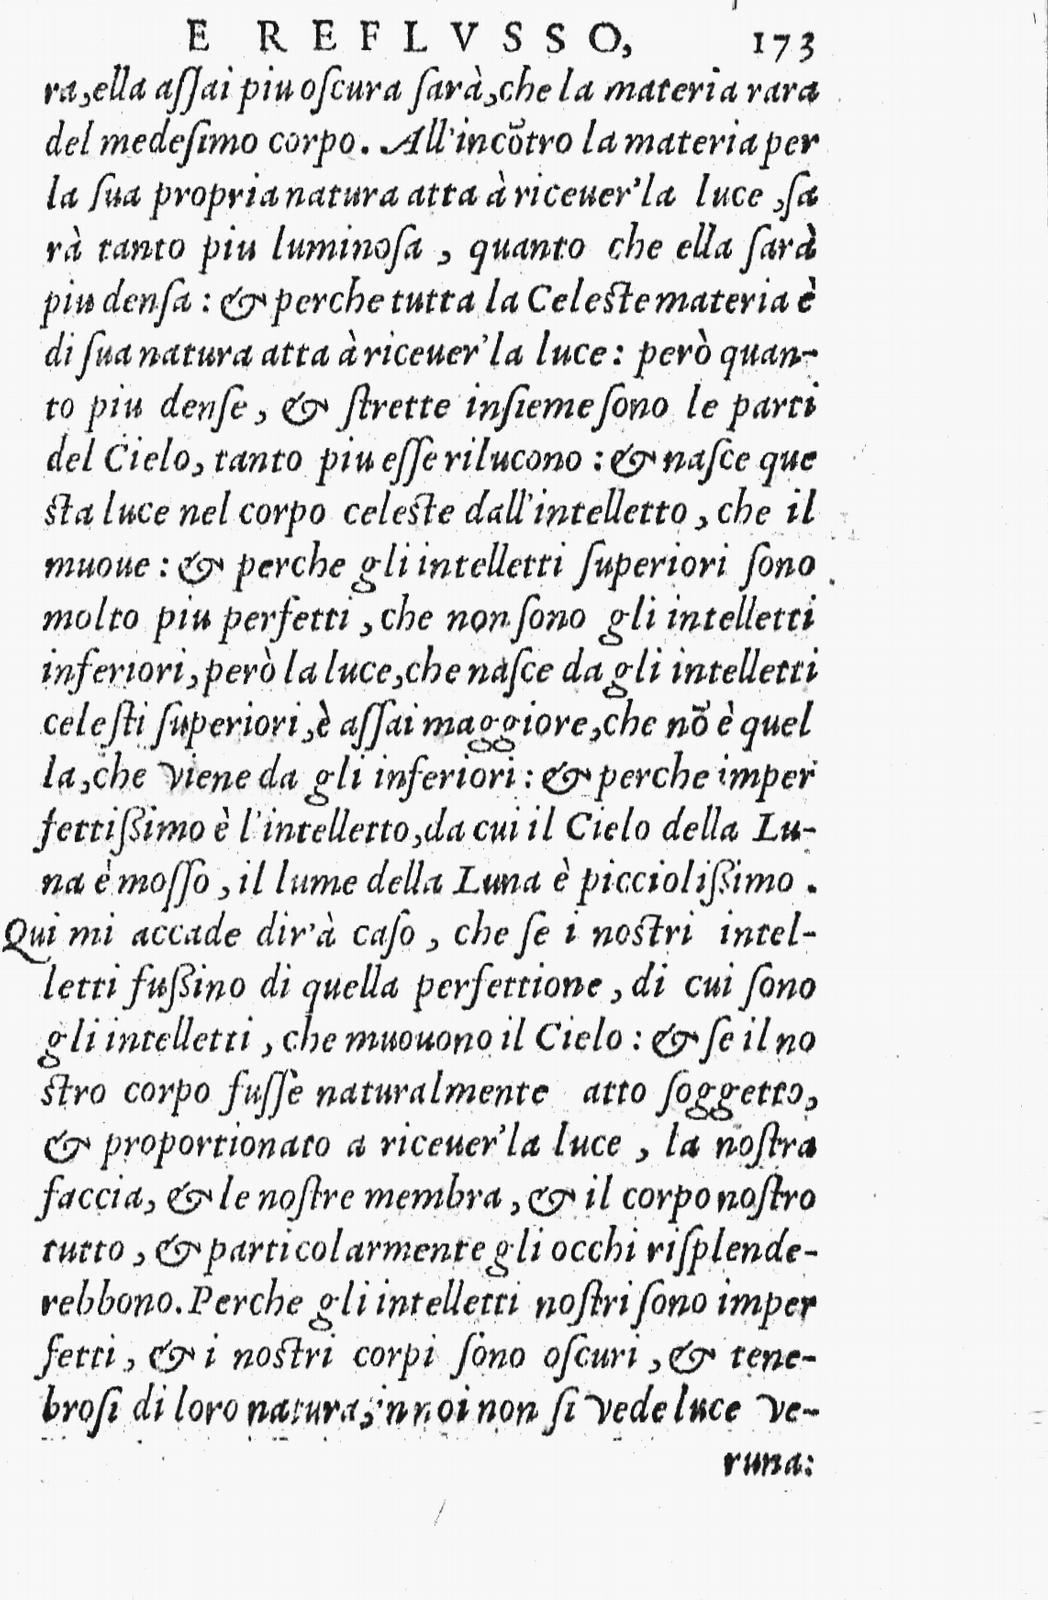 E REFLVSSO, 173
ra,ella aſſai piu oſcura ſarà,che la materia rara
del medeſimo corpo. All'incõtro la materia per
la ſua propria natura atta à riceuer'la luce ,ſa
rà tanto piu luminoſa , quanto che ella ſarà
piu denſa : & perche tutta la Celeſte materia è
di ſua natura atta à riceuer'la luce : però quan-
to piu denſe , & ſtrette inſieme ſono le parti
del Cielo, tanto piu eſſe rilucono : & naſce que
ſta luce nel corpo celeſte dall'intelletto , che il
muoue : & perche gli intelletti ſuperiori ſono
molto piu perfetti , che non ſono gli intelletti
inferiori, però la luce,che naſce da gli intelletti
celeſti ſuperiori,è aſſai maggiore,che nõ è quel
la,che viene da gli inferiori : & perche imper
fettiſſimo è l'intelletto,da cui il Cielo della Lu-
na è moſſo , il lume della Luna è piccioliſſimo .
Qui mi accade dir'à caſo , che ſe i noſtri intel-
letti fuſſino di quella perfettione , di cui ſono
gli intelletti , che muouono il Cielo : & ſe il no
ſtro corpo fuſſe naturalmente atto ſoggetto,
& proportionato a riceuer'la luce , la noſtra
faccia, & le noſtre membra , & il corpo noſtro
tutto , & particolarmente gli occhi riſplende-
rebbono. Perche gli intelletti noſtri ſono imper
fetti , & i noſtri corpi ſono oſcuri , & tene-
broſi di loro natura,in noi non ſi vede luce ve-
runa: